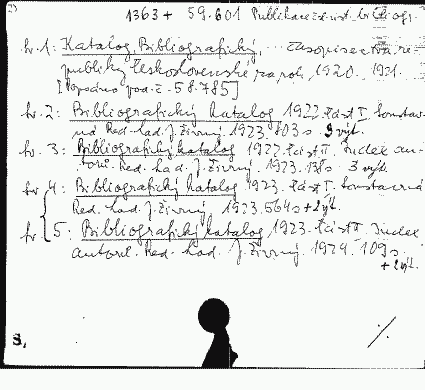 1363+ 59.601 Publikace čs. úst. bibliogr.
kr. 1: Katalog Bibliografický, ... časopisectva re-
publiky československé za rok 1920. 1921.
[Popsáno pod č. 58.785]
kr. 2: Bibliografický katalog 1922 část I.
Red. Lad. J. Živný. 1923. 803 s. 3 výt.
kr. 3: Bibliografický katalog 1922. část II. Index au-
torů. Red. Lad. J. Živný. 1923. 138 s. 3 výt.
kr. 4: Bibliografický katalog 1923. část I.
Red. Lad. J. Živný 1923. 564 s + 2 výt.
kr. 5: Bibliografický katalog 1923. část II. Index
autorů. Red. Lad. J. Živný. 1924. 109 s.
+ 2 výt.
S.